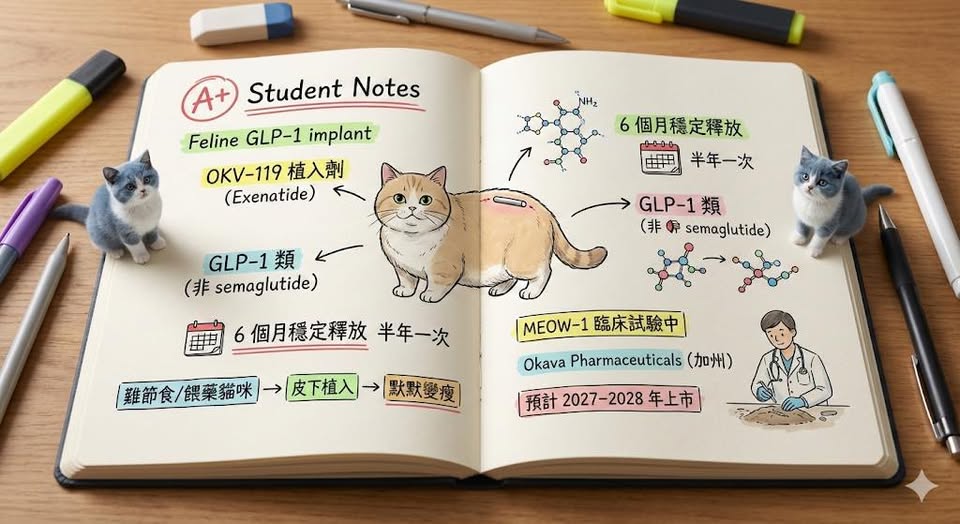 A+ Student Notes
Feline GLP-1 implant
OKV-119 植入劑
(Exenatide)
GLP-1 類
(非 semaglutide)
6 個月穩定釋放 半年一次
難節食/餵藥貓咪 → 皮下植入 → 默默變瘦
NH₂
6 個月穩定釋放
半年一次
GLP-1 類
(非 semaglutide)
MEOW-1 臨床試驗中
Okava Pharmaceuticals (加州)
預計 2027-2028 年上市